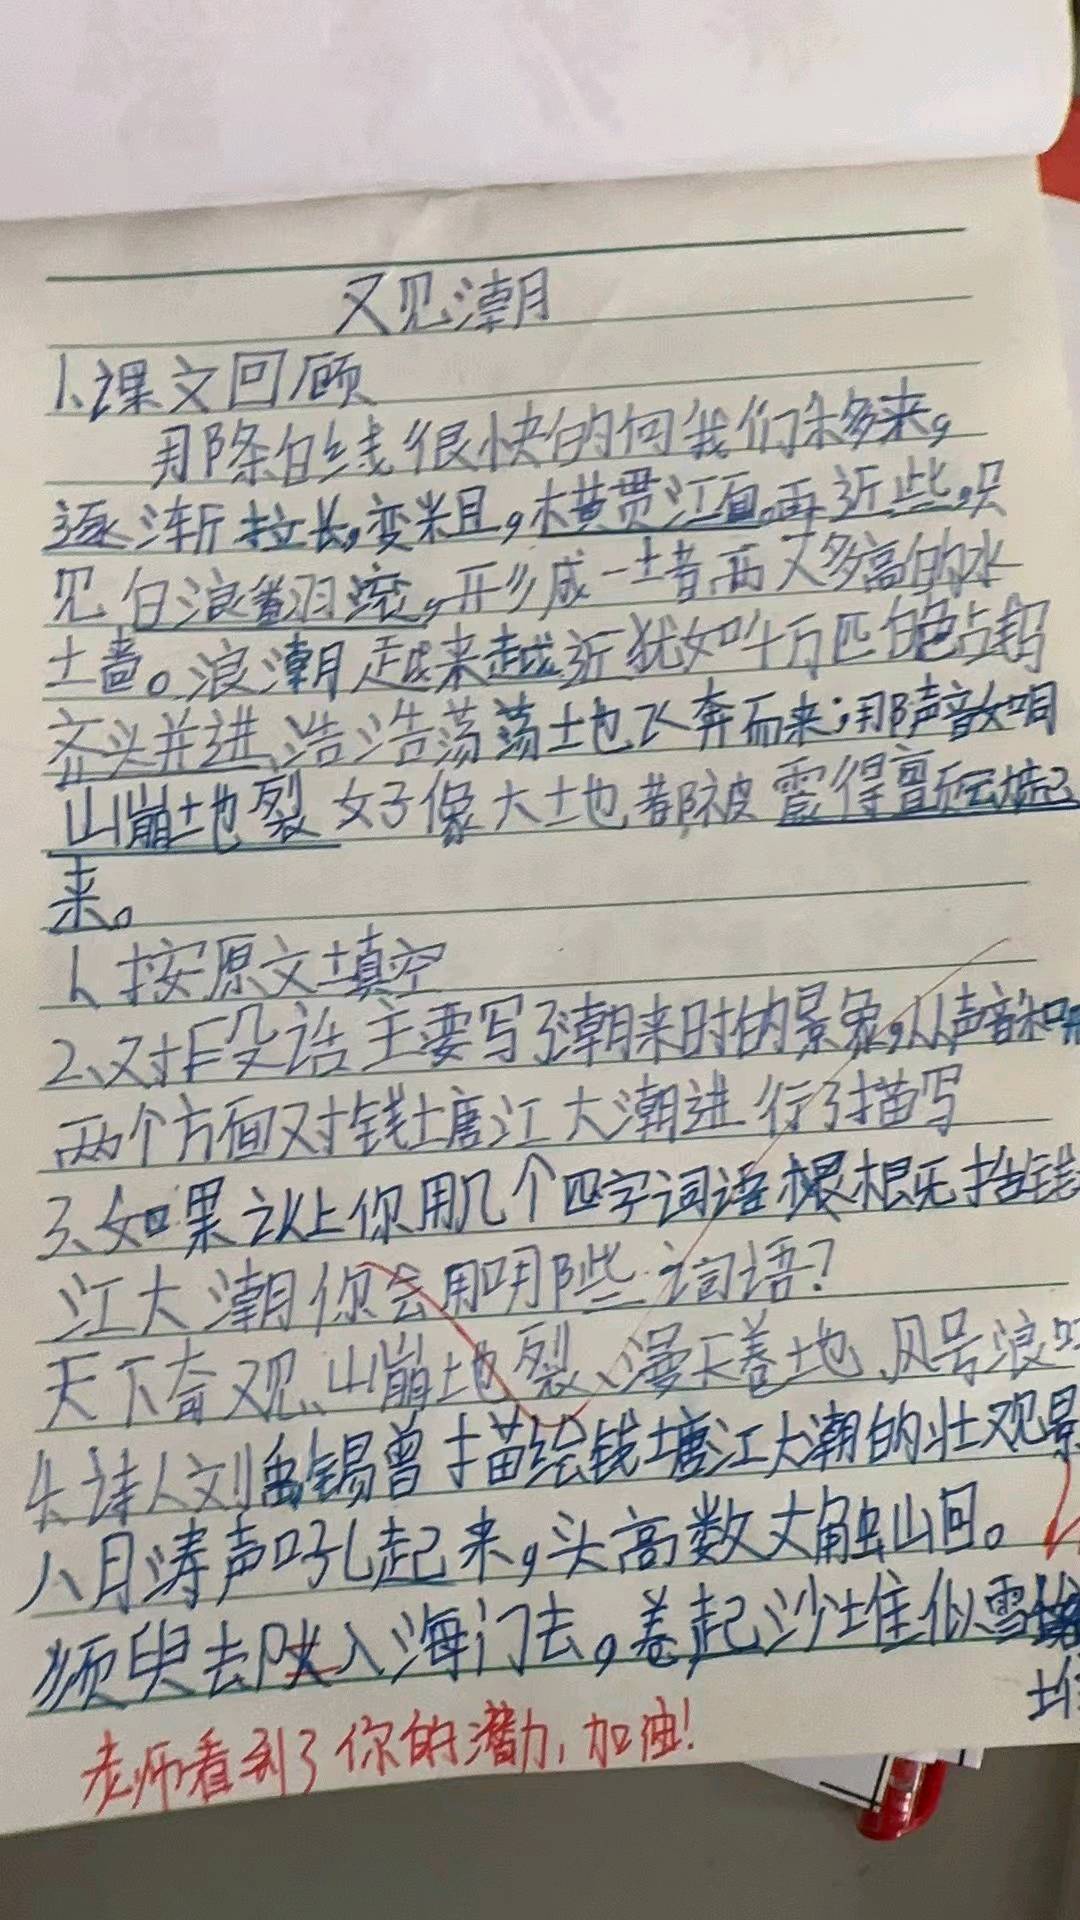 又见潮
1、课文回顾
那条白线很快的向我们移来,
逐渐拉长,变粗,横贯江面。再近些,只
见白浪翻滚,形成一堵两丈多高的水
墙。浪潮越来越近犹如千万匹白色占战马
齐头并进、浩浩荡荡地飞奔而来;那声音如同
山崩地裂好像大地都被震得颤动起
来。
1、按原文填空
2、对段话主要写了潮来时的景象,从声音和
两个方面对钱塘江大潮进行了描写
3、如果让你用几个四字词语
江大潮你会用哪些词语?
天下奇观、山崩地裂、漫天卷地、风号浪
4、诗人刘禹锡曾描绘钱塘江大潮的壮观景
八月涛声吼起来,头高数丈触山回。
须臾去 入海门去,卷起沙堆似雪
堆
老师看到了你的潜力,加油!